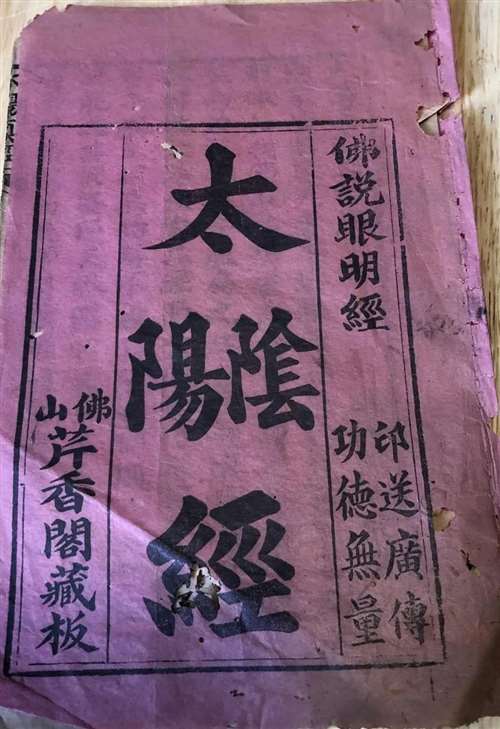 佛説眼明經
印送廣傳
功德無量
太陰陽經
佛山芹香閣藏板